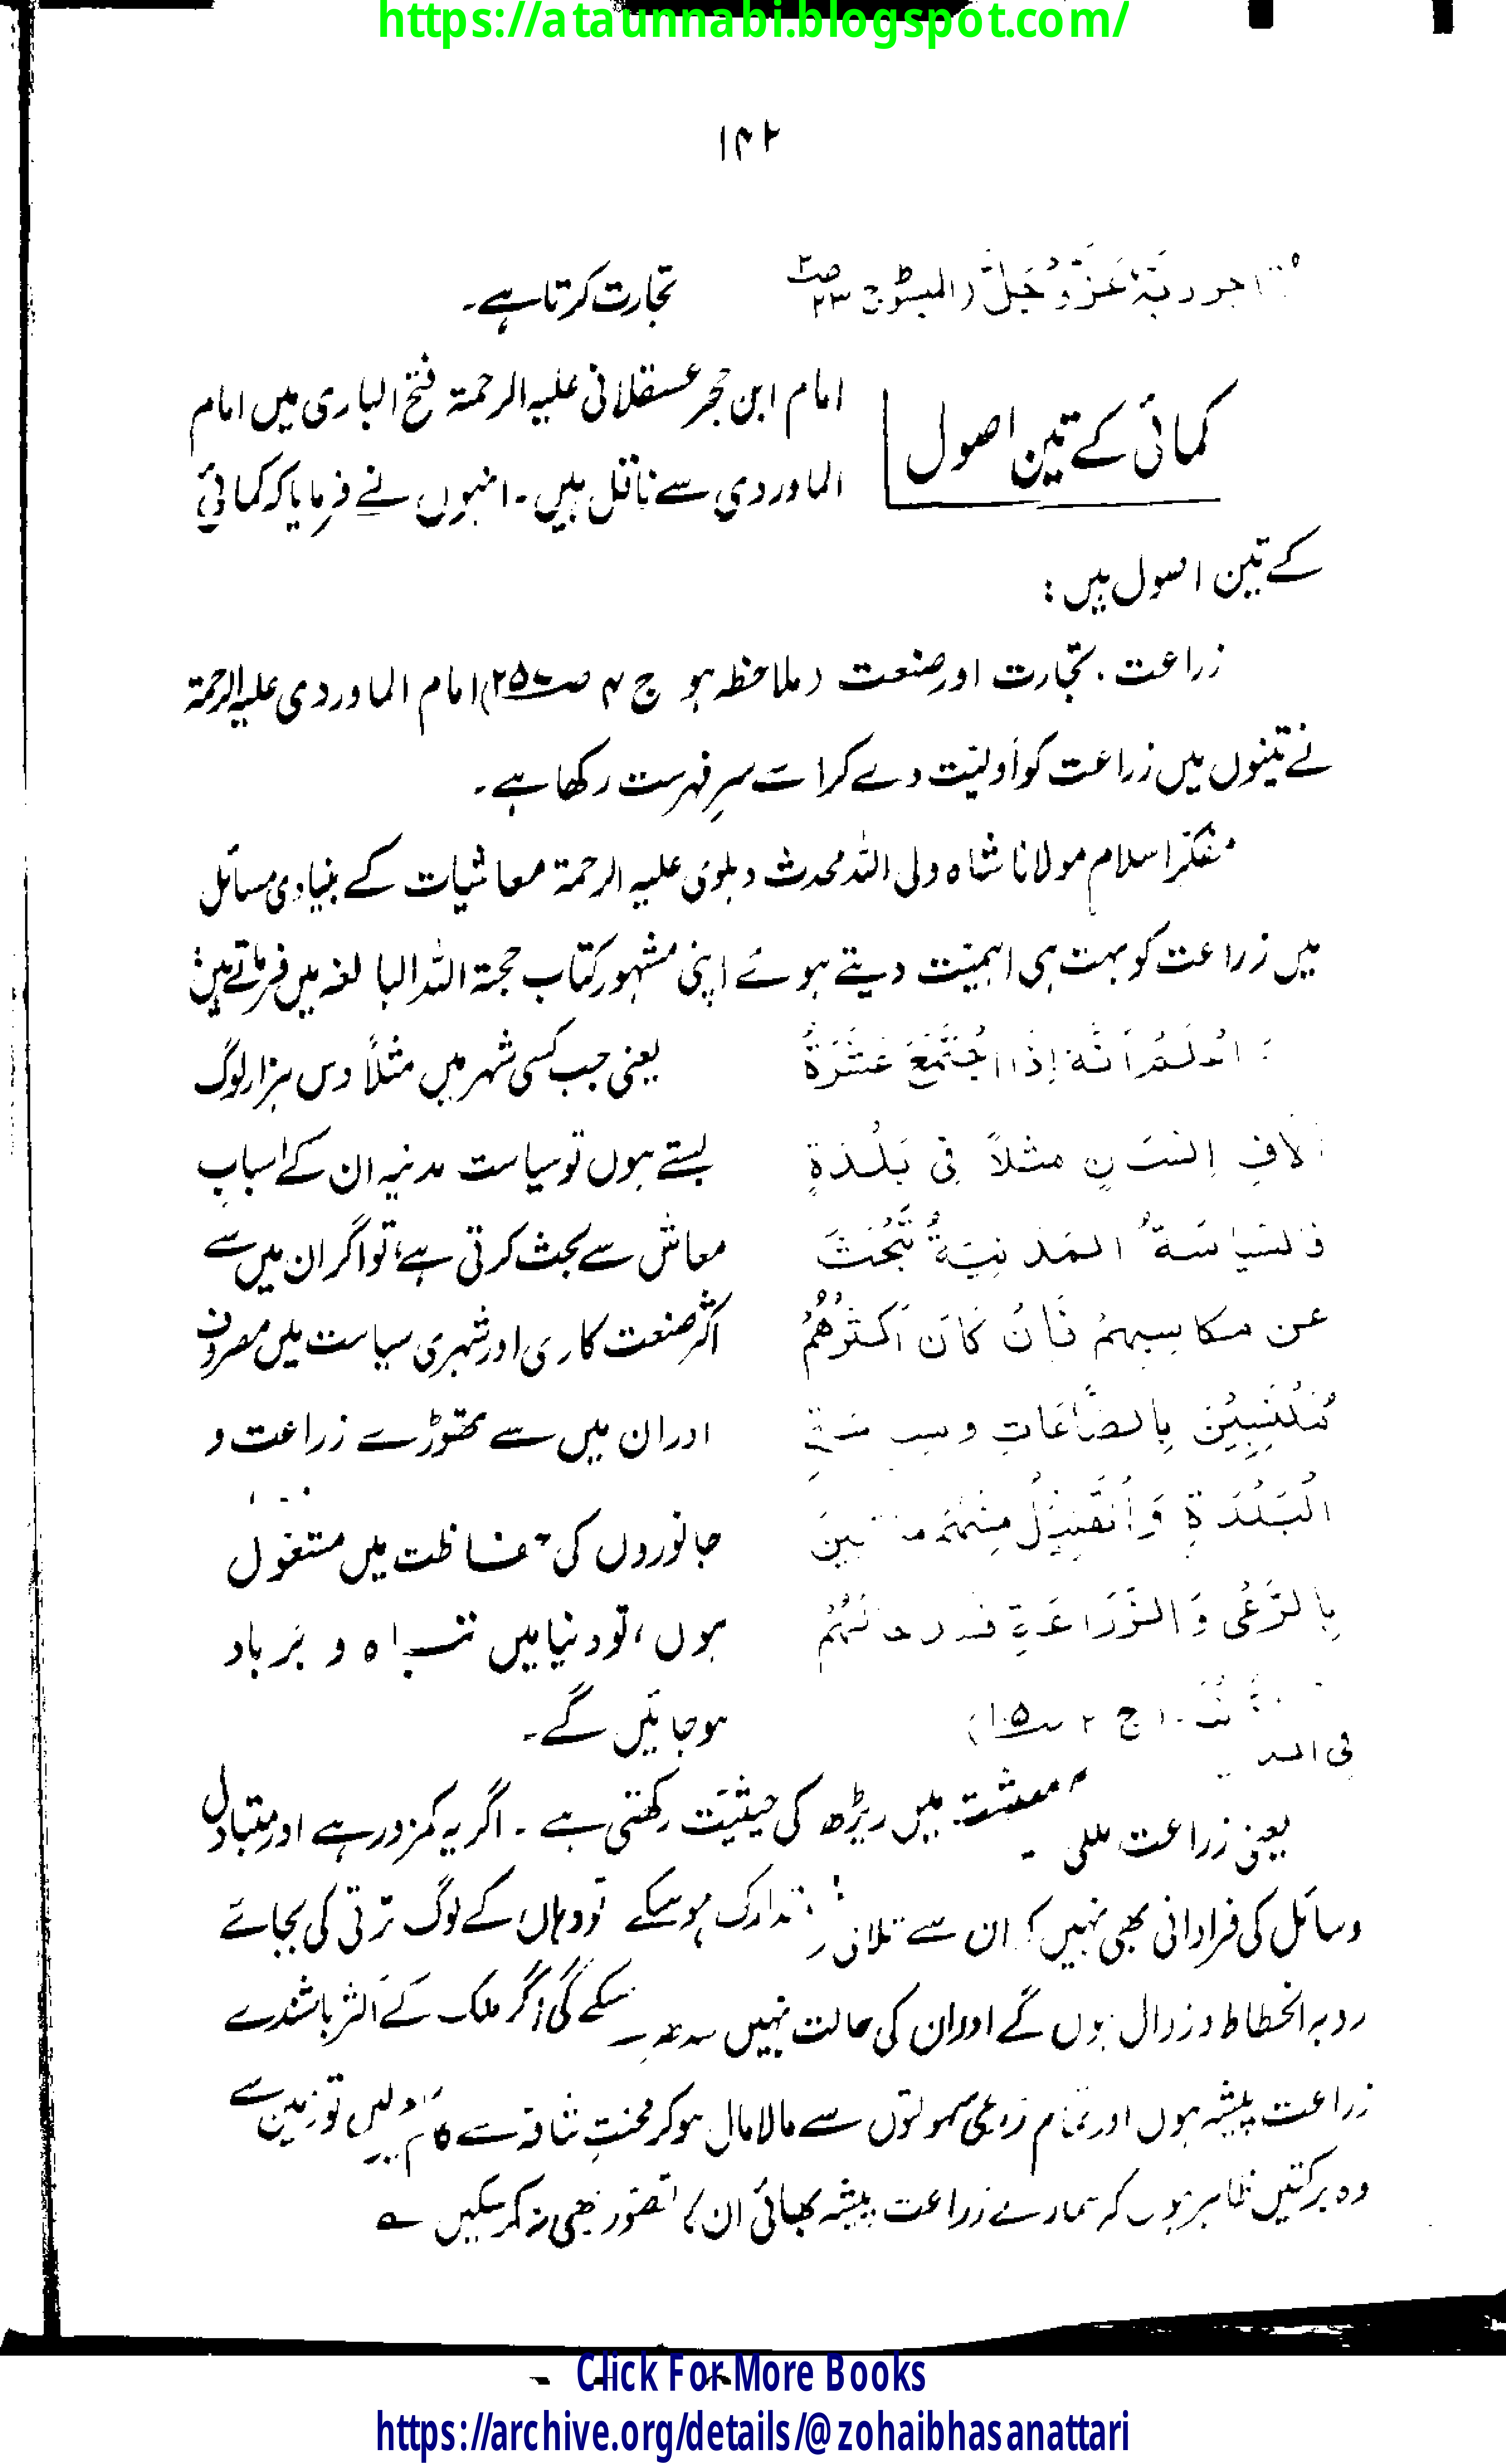 https://ataunnabi.blogspot.com/
۱۴۲
تجارت کرتا ہے۔
کمائی کے تین اصول
امام ابن حجر عسقلانی علیہ الرحمۃ فتح الباری میں امام
الماوردی سے ناقل ہیں۔ انہوں نے فرمایا کہ کمائی
کے تین اصول ہیں :
زراعت، تجارت اور صنعت (ملاحظہ ہو ج ۴ ص) امام الماوردی علیہ الرحمۃ
نے تینوں میں زراعت کو اولیّت دے کر اسے سرِ فہرست رکھا ہے۔
مفکرِ اسلام مولانا شاہ ولی اللہ محدث دہلوی علیہ الرحمۃ معاشیات کے بنیادی مسائل
میں زراعت کو بہت ہی اہمیّت دیتے ہوئے اپنی مشہور کتاب حجۃ اللہ البالغہ میں فرماتے ہیں:
اِذَا اجْتَمَعَ عَشَرَةُ
اٰلافِ اِنْسَانٍ مثلاً فِی بَلْدَةٍ
فَالسِّيَاسَةُ الْمَدَنِيَّةُ تَبْحَثُ
عن مكاسبهمْ فَاِنْ كَانَ اَكْثَرُهُمْ
مُكْتَسِبِيْنَ بِالصَّنَاعَاتِ و سياسةِ
الْبَلْدَةِ وَالْقَلِيْلُ مِنْهُمْ مكتسبينَ
بِالرَّعْیِ وَالزِّرَاعَةِ فسد حالهُمْ
یعنی جب کسی شہر میں مثلاً دس ہزار لوگ
بستے ہوں تو سیاست مدنیہ ان کے اسبابِ
معاش سے بحث کرتی ہے، تو اگر ان میں سے
اکثر صنعت کاری اور شہری سیاست میں مصروف
اور ان میں سے تھوڑے زراعت و
جانوروں کی حفاظت میں مشغول
ہوں، تو دنیا میں تباہ و برباد
ہو جائیں گے۔
یعنی زراعت ملکی معیشت میں ریڑھ کی حیثیّت رکھتی ہے۔ اگر یہ کمزور ہے اور متبادل
وسائل کی فراوانی بھی نہیں کہ ان سے تلافی و تدارک ہو سکے تو وہاں کے لوگ ترقی کی بجائے
روبہ انحطاط و زوال ہوں گے اور ان کی حالت نہیں سدھر سکے گی اگر ملک کے اکثر باشندے
زراعت پیشہ ہوں اور تمام زرعی سہولتوں سے مالا مال ہو کر محنتِ شاقہ سے کام لیں تو زمین سے
وہ برکتیں ظاہر ہوں کہ ہمارے زراعت پیشہ بھائی ان کا تصوّر بھی نہ کر سکیں ؎
Click For More Books
https://archive.org/details/@zohaibhasanattari